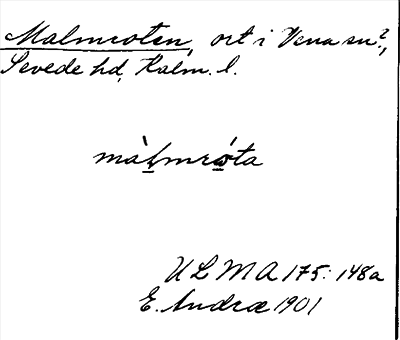 Malmroten, ort i Vena sn?,
Sevede hd, Kalm. l.
màl̠mró̠ta
ULMA 175:148a
E. Andræ 1901